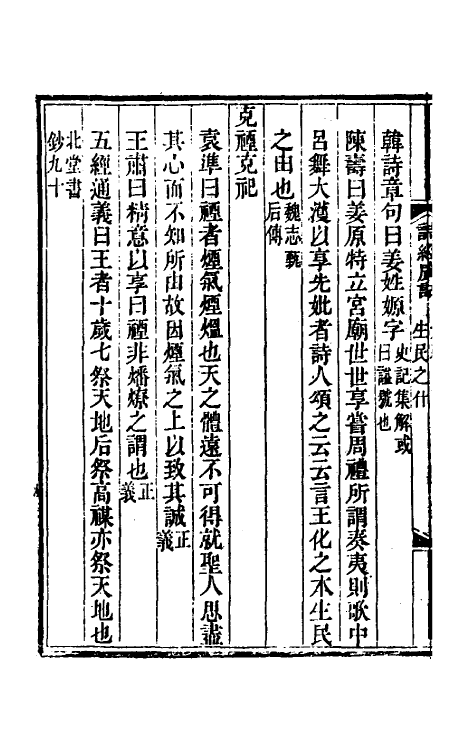 詩經廣詁 生民之什
韓詩章句曰姜姓嫄字史記集解或曰諡號也
陳壽曰姜原特立宮廟世世享嘗周禮所謂奏夷則歌中
呂舞大濩以享先妣者詩人頌之云云言王化之本生民
之由也魏志甄后傳
克禋克祀
袁準曰禋者煙氣煙熅也天之體遠不可得就聖人思盡
其心而不知所由故因煙氣之上以致其誠正義
王肅曰精意以享曰禋非燔燎之謂也正義
五經通義曰王者十歲七祭天地后祭高禖亦祭天地也
北堂書鈔九十